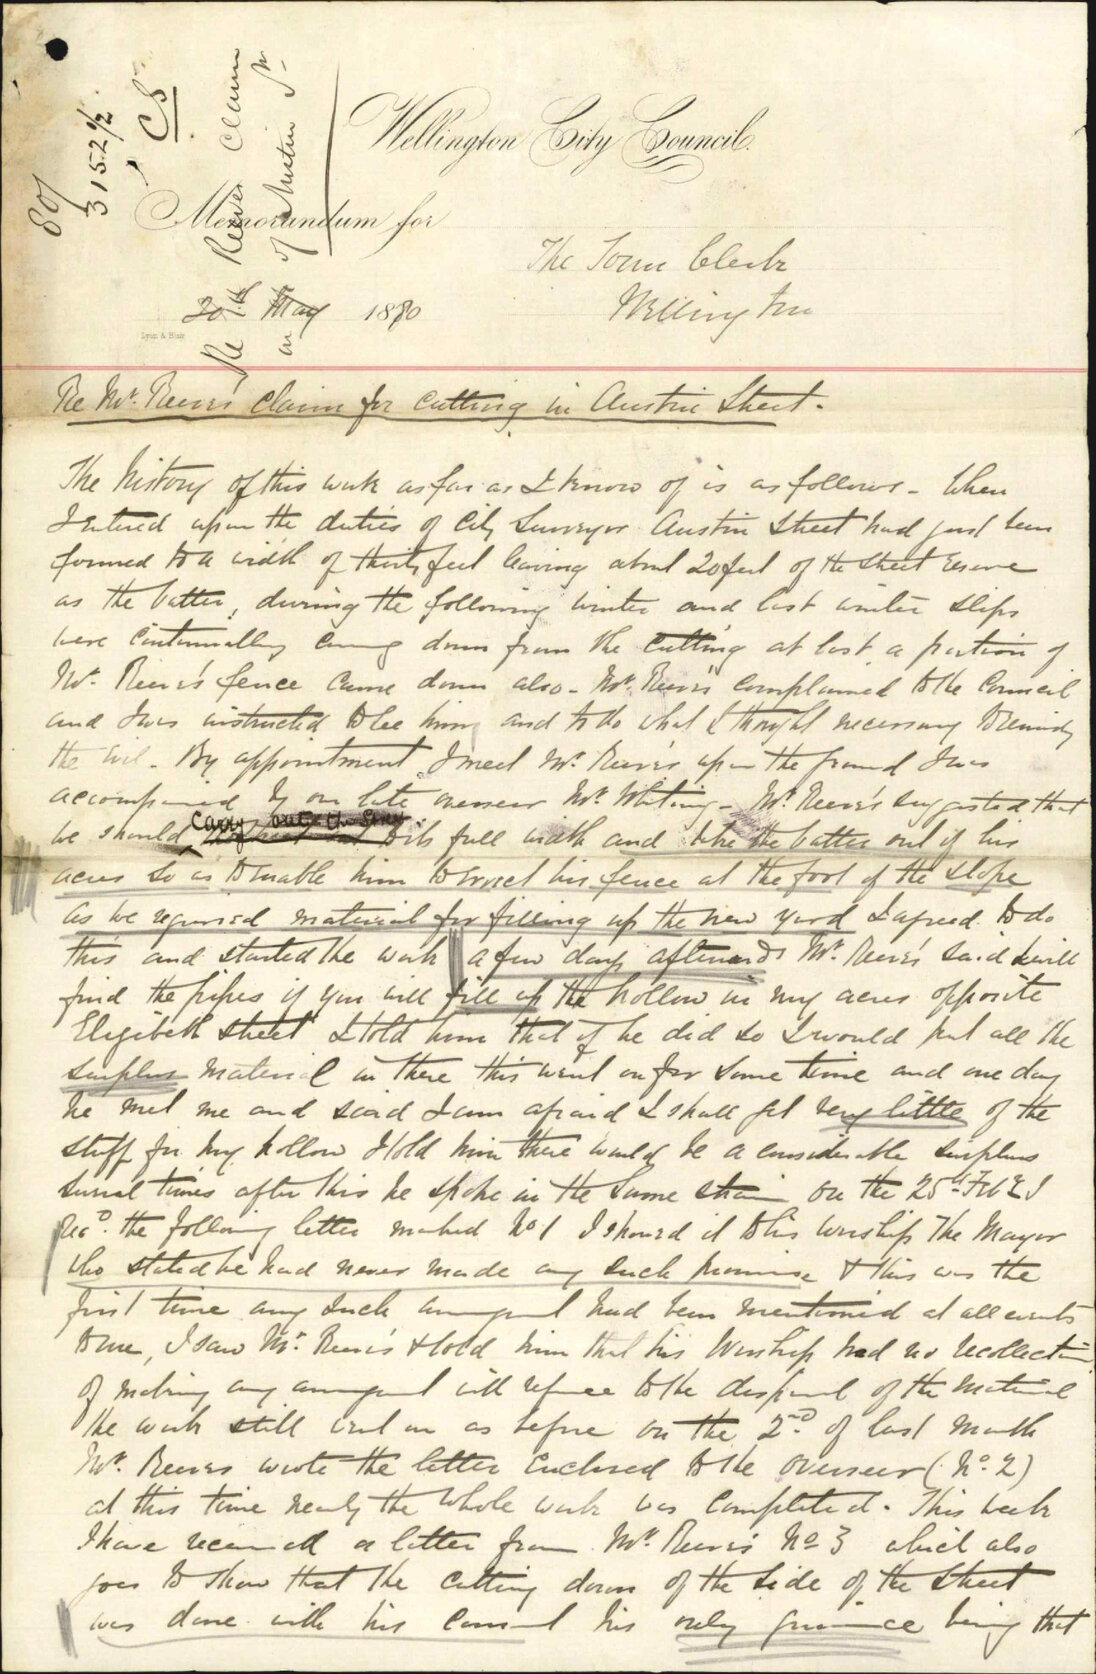 80/
3152½
CS
Re Reeves Claim
in of Austin St
Wellington City Council.
Memorandum for
The Town Clerk
Wellington
20th May 1880
Lyon & Blair
Re Mr. Reeve's claim for cutting in Austin Street.
The history of this work as far as I know of is as follows - When
I entered upon the duties of City Surveyor Austin Street had just been
formed to a width of thirty feet leaving about 20 feet of the street reserve
as the batter, during the following winter and last winter slips
were continually coming down from the cutting at last a portion of
Mr. Reeve's fence came down also - Mr. Reeve's complained to the Council
and I was instructed to see him and to do what I thought necessary to remedy
the evil - By appointment I meet Mr. Reeve's upon the ground I was
accompanied by our late overseer Mr. Whiting - Mr. Reeve's suggested that
we should carry out the street to its full width and take the batter out of his
acres so as to enable him to erect his fence at the foot of the slope
As we required material for filling up the new yard I agreed to do
this and started the work a few days afterwards Mr. Reeve's said I will
find the pipes if you will fill up the hollow in my acres opposite
Elizibeth street I told him that if he did so I would put all the
surplus material in there this went on for some time and one day
he met me and said I am afraid I shall get very little of the
stuff for my hollow I told him there would be a considerable surplus
several times after this he spoke in the same strain on the 25th Feby I
recd. the following letter marked No 1 I showed it to his Worship the Mayor
who stated he had never made any such promise & this was the
first time any such arrangement had been mentioned at all events
to me, I saw Mr. Reeve's & told him that his Worship had no recollection
of making any arrangement with refnce to the disposal of the material
the work still went on as before on the 2nd of last month
Mr. Reeves wrote the letter enclosed to the overseer (No. 2)
at this time nearly the whole work was completed. This week
I have received a letter from Mr. Reeve's No 3 which also
goes to show that the cutting down of the side of the Street
was done with his consent his only grievance being that